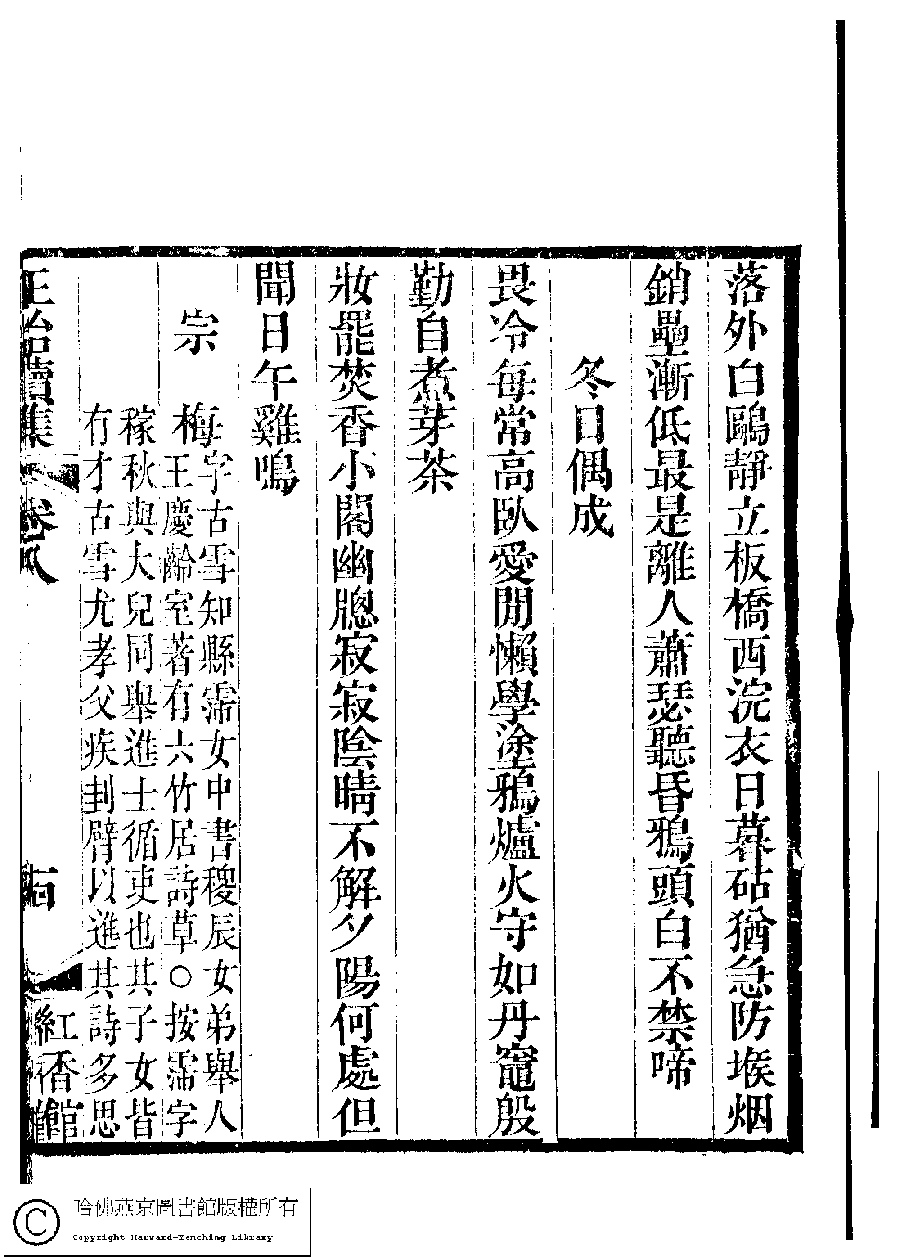 落外白鷗靜立板橋西浣衣日暮砧猶急防堠烟
銷壘漸低最是離人蕭瑟聽昏鴉頭白不禁啼
冬日偶成
畏冷每常高臥愛閒懶學塗鴉爐火守如丹竈殷
勤自煮芽茶
妝罷焚香小閣幽牕寂寂陰晴不解夕陽何處但
聞日午雞鳴
宗梅
字古雪知縣霈女中書稷辰女弟舉人
王慶齡室著有六竹居詩草○按霈字
稼秋與大兒同舉進士循吏也其子女皆
有才古雪尤孝父疾刲臂以進其詩多思
正始續集
卷八
古
紅香館
哈佛燕京圖書館版權所有
Copyright Harvard-Yenching Library